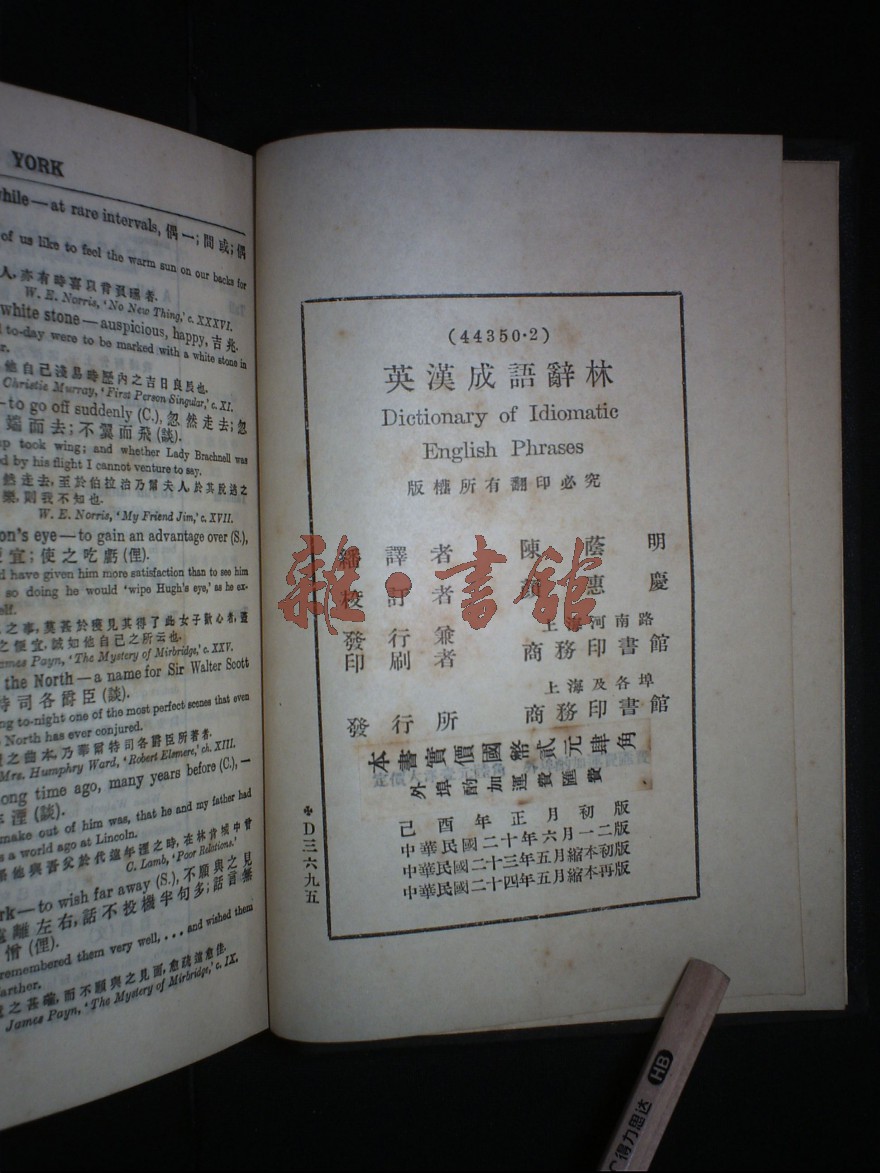 YORK
while—at rare intervals, 偶一; 間或; 偶
of us like to feel the warm sun on our backs for
人,亦有時喜以背負暄者.
W. E. Norris, 'No New Thing,' c. XXXVI.
white stone—auspicious, happy, 吉兆.
to-day were to be marked with a white stone in
他自己淺鳥時歷內之吉日良辰也.
Christie Murray, 'First Person Singular,' c. XI.
—to go off suddenly (C.), 忽然走去; 忽
而去; 不翼而飛 (談).
up took wing; and whether Lady Brachnell was
ed by his flight I cannot venture to say.
然走去,至於伯拉治乃爾夫人於其脫逃之
樂,則我不知也.
W. E. Norris, 'My Friend Jim,' c. XVII.
on's eye—to gain an advantage over (S.),
便宜; 使之吃虧 (俚).
d have given him more satisfaction than to see him
so doing he would 'wipe Hugh's eye,' as he ex-
self.
之事,莫甚於獲見其得了此女子歡心者,蓋
之便宜,誠如他自己之所云也.
James Payn, 'The Mystery of Mirbridge,' c. XXV.
the North—a name for Sir Walter Scott
特司各爵臣 (談).
ng to-night one of the most perfect scenes that even
North has ever conjured.
之曲本,乃華爾特司各爵臣所著者.
Mrs. Humphry Ward, 'Robert Elsmere,' ch. XIII.
long time ago, many years before (C.),—
年湮 (談).
make out of him was, that he and my father had
s a world ago at Lincoln.
他與吾父於代遠年湮之時,在林肯城中曾
C. Lamb, 'Poor Relations.'
rk—to wish far away (S.), 不願與之見
離左右, 話不投機半句多; 話言無
憎 (俚).
remembered them very well, . . . and wished them
farther.
之甚確,而不願與之見面,愈疏遠愈佳.
James Payn, 'The Mystery of Mirbridge,' c. IX.
(44350·2)
英漢成語辭林
Dictionary of Idiomatic
English Phrases
版權所有翻印必究
繙譯者 陳蔭明
校訂者 顏惠慶
上海河南路
發行兼印刷者 商務印書館
上海及各埠
發行所 商務印書館
本書實價國幣貳元肆角
外埠酌加運費匯費
己酉年正月初版
中華民國二十年六月一二版
中華民國二十三年五月縮本初版
中華民國二十四年五月縮本再版
D三六九五
雜·書館
HB
得力思达